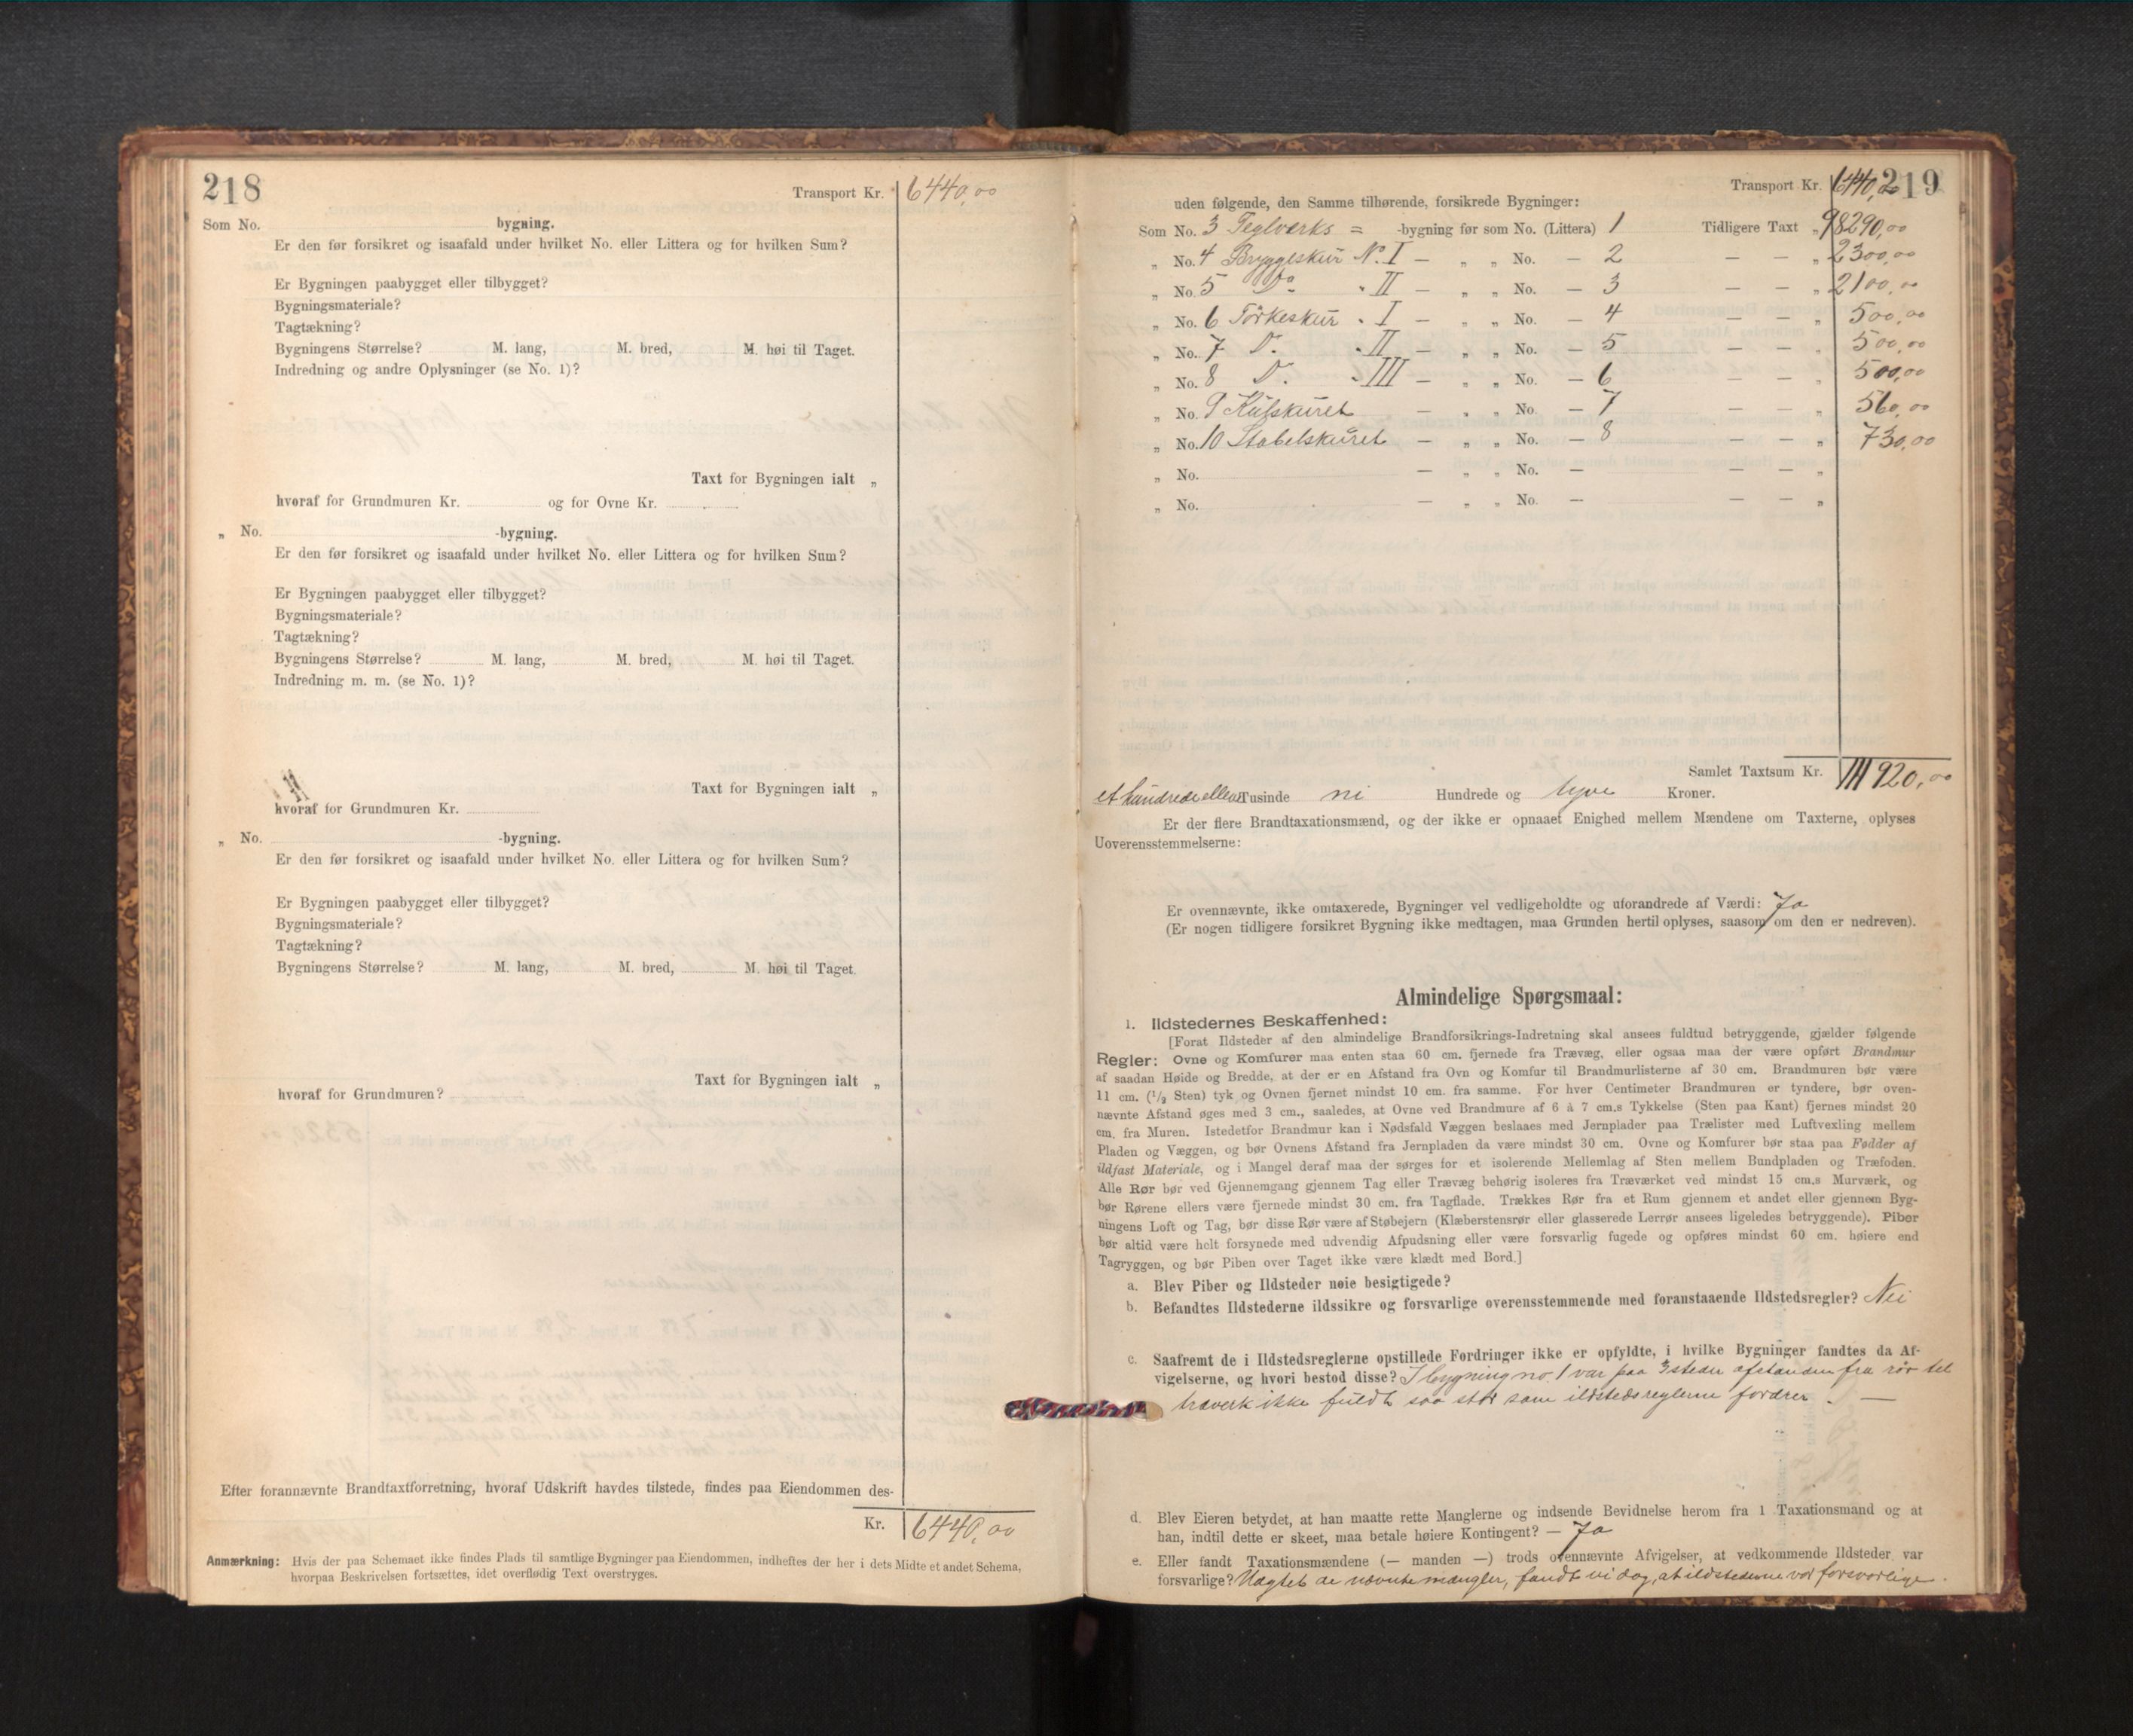 218
Transport Kr. 6440,00
Som No. bygning.
Er den før forsikret og isaafald under hvilket No. eller Littera og for hvilken Sum?
Er Bygningen paabygget eller tilbygget?
Bygningsmateriale?
Tagtækning?
Bygningens Størrelse? M. lang, M. bred, M. høi til Taget.
Indredning og andre Oplysninger (se No. 1)?
Taxt for Bygningen ialt „
hvoraf for Grundmuren Kr. og for Ovne Kr.
„ No. -bygning.
Er den før forsikret og isaafald under hvilket No. eller Littera og for hvilken Sum?
Er Bygningen paabygget eller tilbygget?
Bygningsmateriale?
Tagtækning?
Bygningens Størrelse? M. lang, M. bred, M. høi til Taget.
Indredning m. m. (se No. 1)?
Taxt for Bygningen ialt „
hvoraf for Grundmuren Kr.
„ No. -bygning.
Er den før forsikret og isaafald under hvilket No. eller Littera og for hvilken Sum?
Er Bygningen paabygget eller tilbygget?
Bygningsmateriale?
Tagtækning?
Bygningens Størrelse? M. lang, M. bred, M. høi til Taget.
Taxt for Bygningen ialt „
hvoraf for Grundmuren?
Efter forannævnte Brandtaxtforretning, hvoraf Udskrift havdes tilstede, findes paa Eiendommen des-
Kr. 6440,00
Anmærkning: Hvis der paa Schemaet ikke findes Plads til samtlige Bygninger paa Eiendommen, indheftes der her i dets Midte et andet Schema,
hvorpaa Beskrivelsen fortsættes, idet overflødig Text overstryges.
219
Transport Kr. 6440,00
uden følgende, den Samme tilhørende, forsikrede Bygninger:
Som No. 3 Teglverks = -bygning før som No. (Littera) 1 Tidligere Taxt „ 98290,00
„ No. 4 Bryggeskur No. I — „ „ No. — 2 — — „ 2300,00
„ No. 5 Do „ II — „ „ No. — 3 — — „ 2100,00
„ No. 6 Törkeskur „ I — „ „ No. — 4 — — „ 500,00
„ No. 7 Do. „ II — „ „ No. — 5 — — „ 500,00
„ No. 8 Do. „ III — „ „ No. — 6 — — „ 500,00
„ No. 9 Kulskuret — „ „ No. — 7 — — „ 560,00
„ No. 10 Stabelskuret — „ „ No. — 8 — — „ 730,00
„ No. — „ „ No. — — — „
„ No. — „ „ No. — — — „
Samlet Taxtsum Kr. 111920,00
et hundrede elleve Tusinde ni Hundrede og tyve Kroner.
Er der flere Brandtaxationsmænd, og der ikke er opnaaet Enighed mellem Mændene om Taxterne, oplyses
Uoverensstemmelserne:
Er ovennævnte, ikke omtaxerede, Bygninger vel vedligeholdte og uforandrede af Værdi: Ja
(Er nogen tidligere forsikret Bygning ikke medtagen, maa Grunden hertil oplyses, saasom om den er nedreven).
Almindelige Spørgsmaal:
1. Ildstedernes Beskaffenhed:
[Forat Ildsteder af den almindelige Brandforsikrings-Indretning skal ansees fuldtud betryggende, gjælder følgende
Regler: Ovne og Komfurer maa enten staa 60 cm. fjernede fra Trævæg, eller ogsaa maa der være opført Brandmur
af saadan Høide og Bredde, at der er en Afstand fra Ovn og Komfur til Brandmurlisterne af 30 cm. Brandmuren bør være
11 cm. (1/2 Sten) tyk og Ovnen fjernet mindst 10 cm. fra samme. For hver Centimeter Brandmuren er tyndere, bør oven-
nævnte Afstand øges med 3 cm., saaledes, at Ovne ved Brandmure af 6 à 7 cm.s Tykkelse (Sten paa Kant) fjernes mindst 20
cm. fra Muren. Istedetfor Brandmur kan i Nødsfald Væggen beslaaes med Jernplader paa Trælister med Luftvexling mellem
Pladen og Væggen, og bør Ovnens Afstand fra Jernpladen da være mindst 30 cm. Ovne og Komfurer bør staa paa Fødder af
ildfast Materiale, og i Mangel deraf maa der sørges for et isolerende Mellemlag af Sten mellem Bundpladen og Træfoden.
Alle Rør bør ved Gjennemgang gjennem Tag eller Trævæg behørig isoleres fra Træværket ved mindst 15 cm.s Murværk, og
bør Rørene ellers være fjernede mindst 30 cm. fra Tagflade. Trækkes Rør fra et Rum gjennem et andet eller gjennem Byg-
ningens Loft og Tag, bør disse Rør være af Støbejern (Klæberstensrør eller glasserede Lerrør ansees ligeledes betryggende). Piber
bør altid være helt forsynede med udvendig Afpudsning eller være forsvarlig fugede og opføres mindst 60 cm. høiere end
Tagryggen, og bør Piben over Taget ikke være klædt med Bord.]
a. Blev Piber og Ildsteder nøie besigtigede?
b. Befandtes Ildstederne ildssikre og forsvarlige overensstemmende med foranstaaende Ildstedsregler? Nei
c. Saafremt de i Ildstedsreglerne opstillede Fordringer ikke er opfyldte, i hvilke Bygninger fandtes da Af-
vigelserne, og hvori bestod disse? I bygning no. 1 var paa 3 steder afstanden fra rör til
træverk ikke fuldt saa stor som ildstedsreglerne fordrer. —
d. Blev Eieren betydet, at han maatte rette Manglerne og indsende Bevidnelse herom fra 1 Taxationsmand og at
han, indtil dette er skeet, maa betale høiere Kontingent? — Ja
e. Eller fandt Taxationsmændene (— manden —) trods ovennævnte Afvigelser, at vedkommende Ildsteder var
forsvarlige? Uagtet de nævnte mangler, fandt vi dog, at ildstederne var forsvarlige.